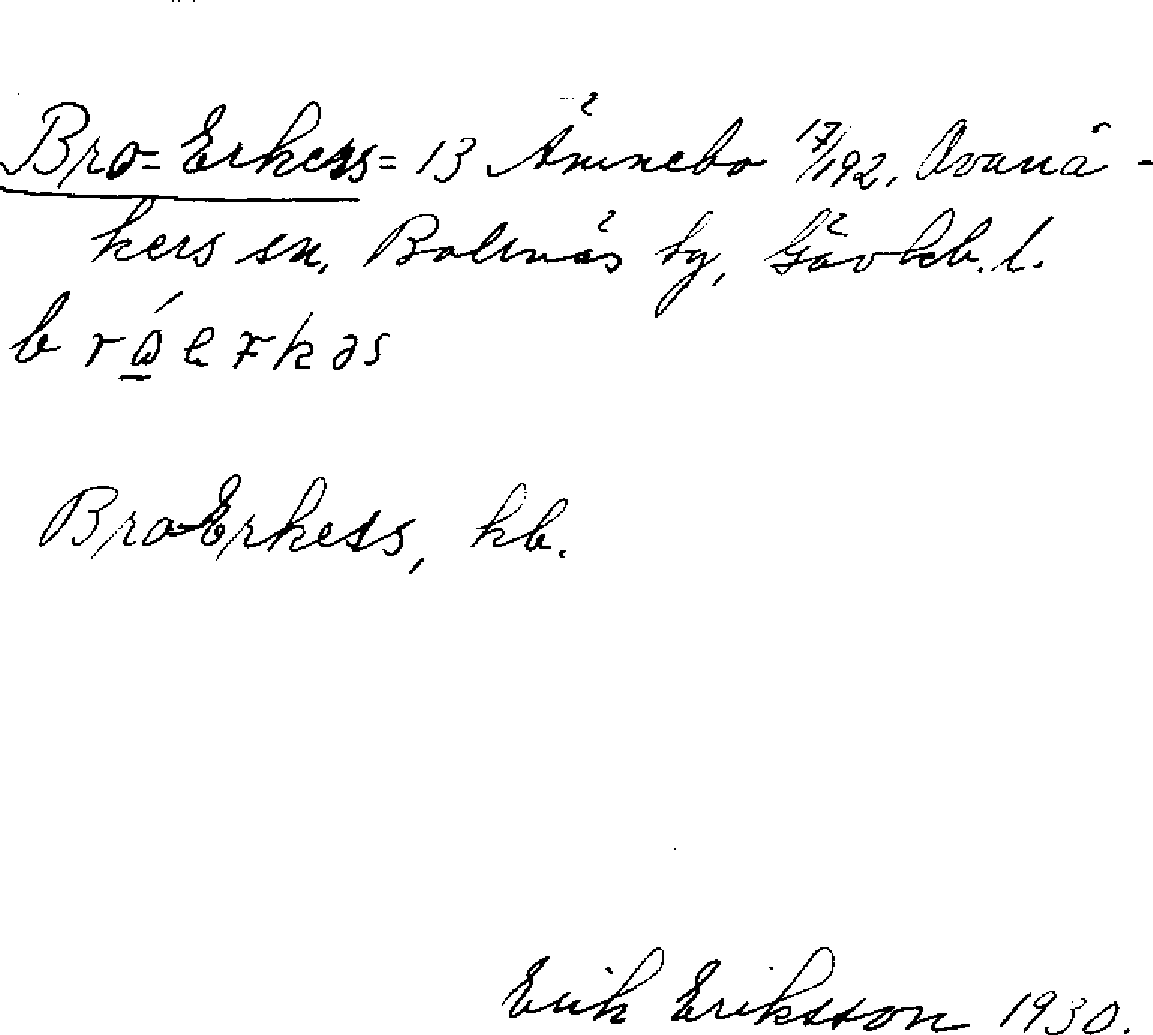 Bro-Erkess = 13 Ännebo 17/192, Ovanå-
kers sn, Bollnäs tg, Gävleb. l.
bróerkəs
Bro-Erkess, kb.
Erik Eriksson 1930.